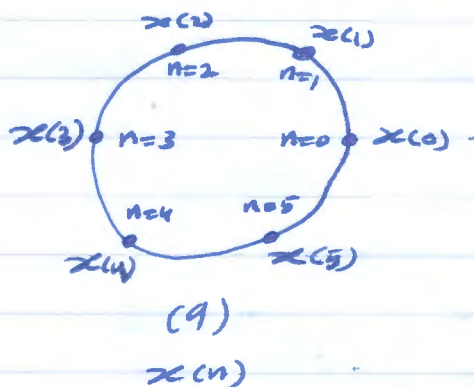 x(2)
x(1)
n=2
n=1
x(3) n=3
n=0 x(0)
n=4
n=5
x(4)
x(5)
(9)
x(n)